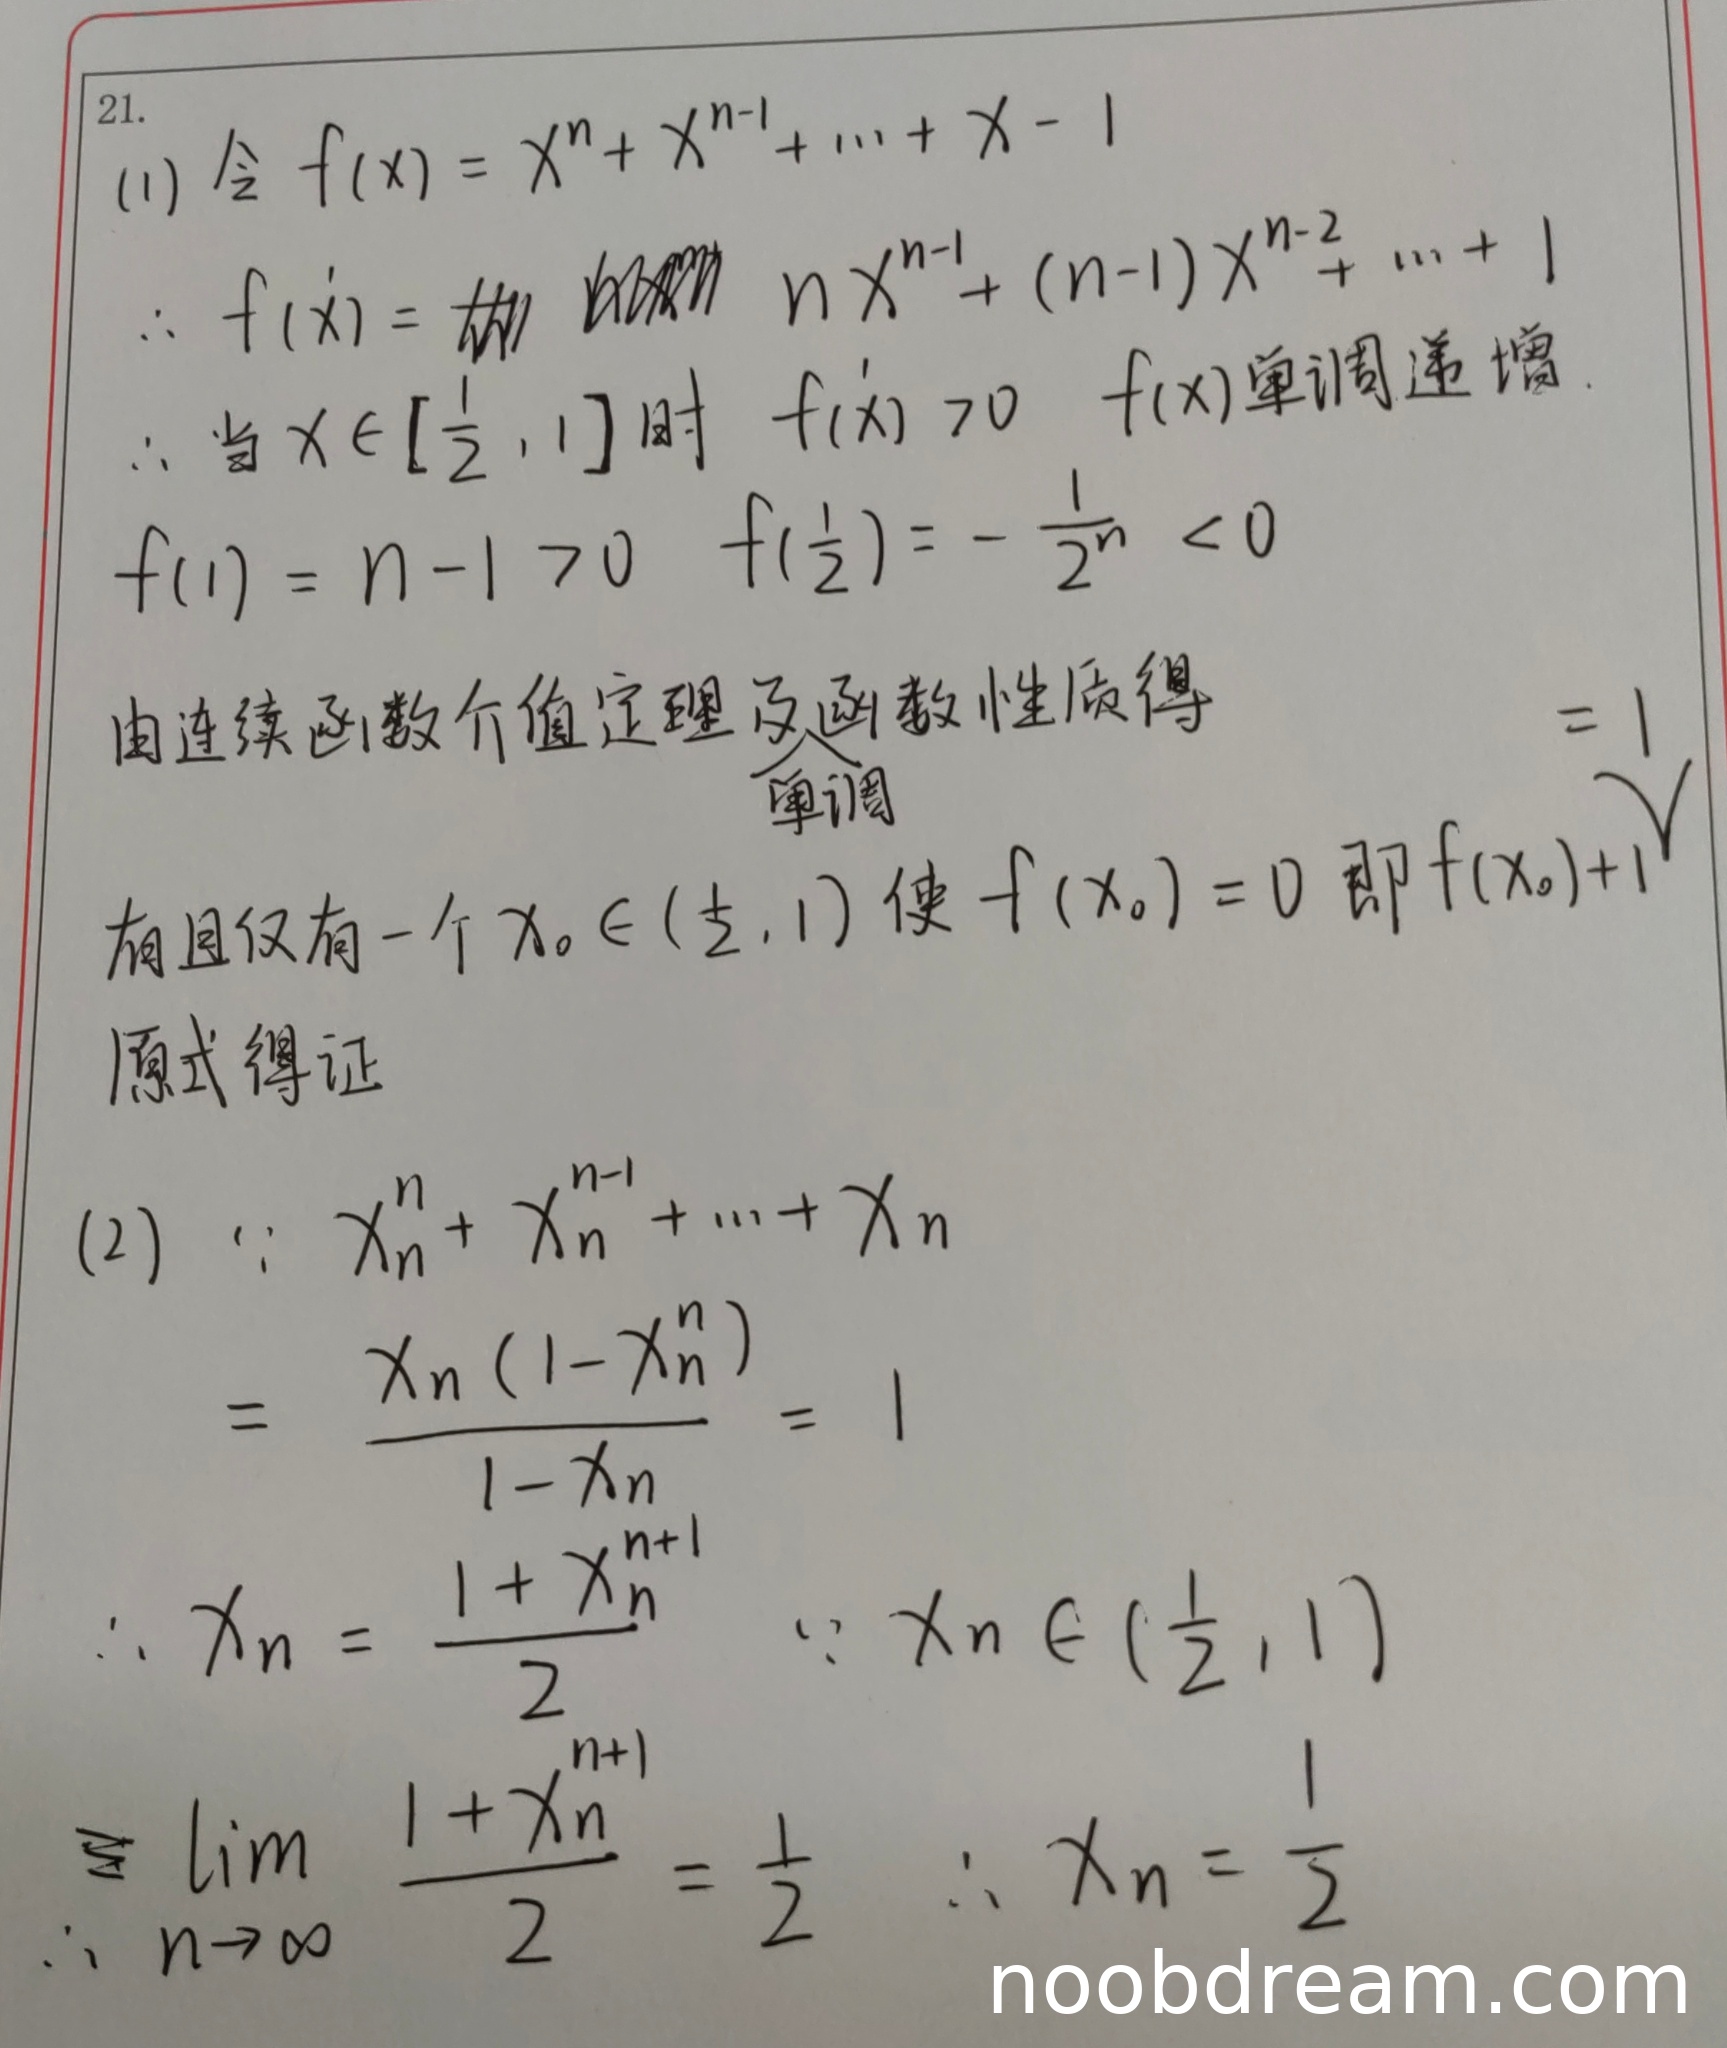 21.
(1) 令 f(x) = xⁿ + xⁿ⁻¹ + ... + x - 1
∴ f(x)' = nxⁿ⁻¹ + (n-1)xⁿ⁻² + ... + 1
∴ 当 x ∈ [1/2, 1] 时 f(x)' > 0 f(x)单调递增.
f(1) = n - 1 > 0 f(1/2) = - 1/2ⁿ < 0
由连续函数介值定理及单调函数性质得
有且仅有一个 x₀ ∈ (1/2, 1) 使 f(x₀) = 0 即 f(x₀)+1 = 1
原式得证
(2) ∵ xₙⁿ + xₙⁿ⁻¹ + ... + xₙ
= xₙ(1-xₙⁿ) / (1-xₙ) = 1
∴ xₙ = (1 + xₙⁿ⁺¹) / 2 ∵ xₙ ∈ (1/2, 1)
∴ lim n→∞ (1 + xₙⁿ⁺¹) / 2 = 1/2 ∴ xₙ = 1/2
noobdream.com